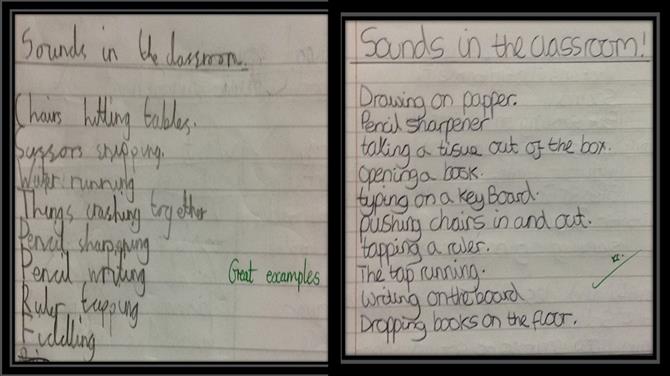 Sounds in the classroom.
Chairs hitting tables.
Scissors snipping.
Water running
Things crashing together
Pencil sharpening
Pencil writing
Great examples
Ruler tapping
Fiddling
Sounds in the classroom!
Drawing on papper.
Pencil sharpener
taking a tissue out of the box.
opening a book.
typing on a keyBoard.
pushing chairs in and out.
tapping a ruler.
The tap running.
writing on the board
Dropping books on the floor.